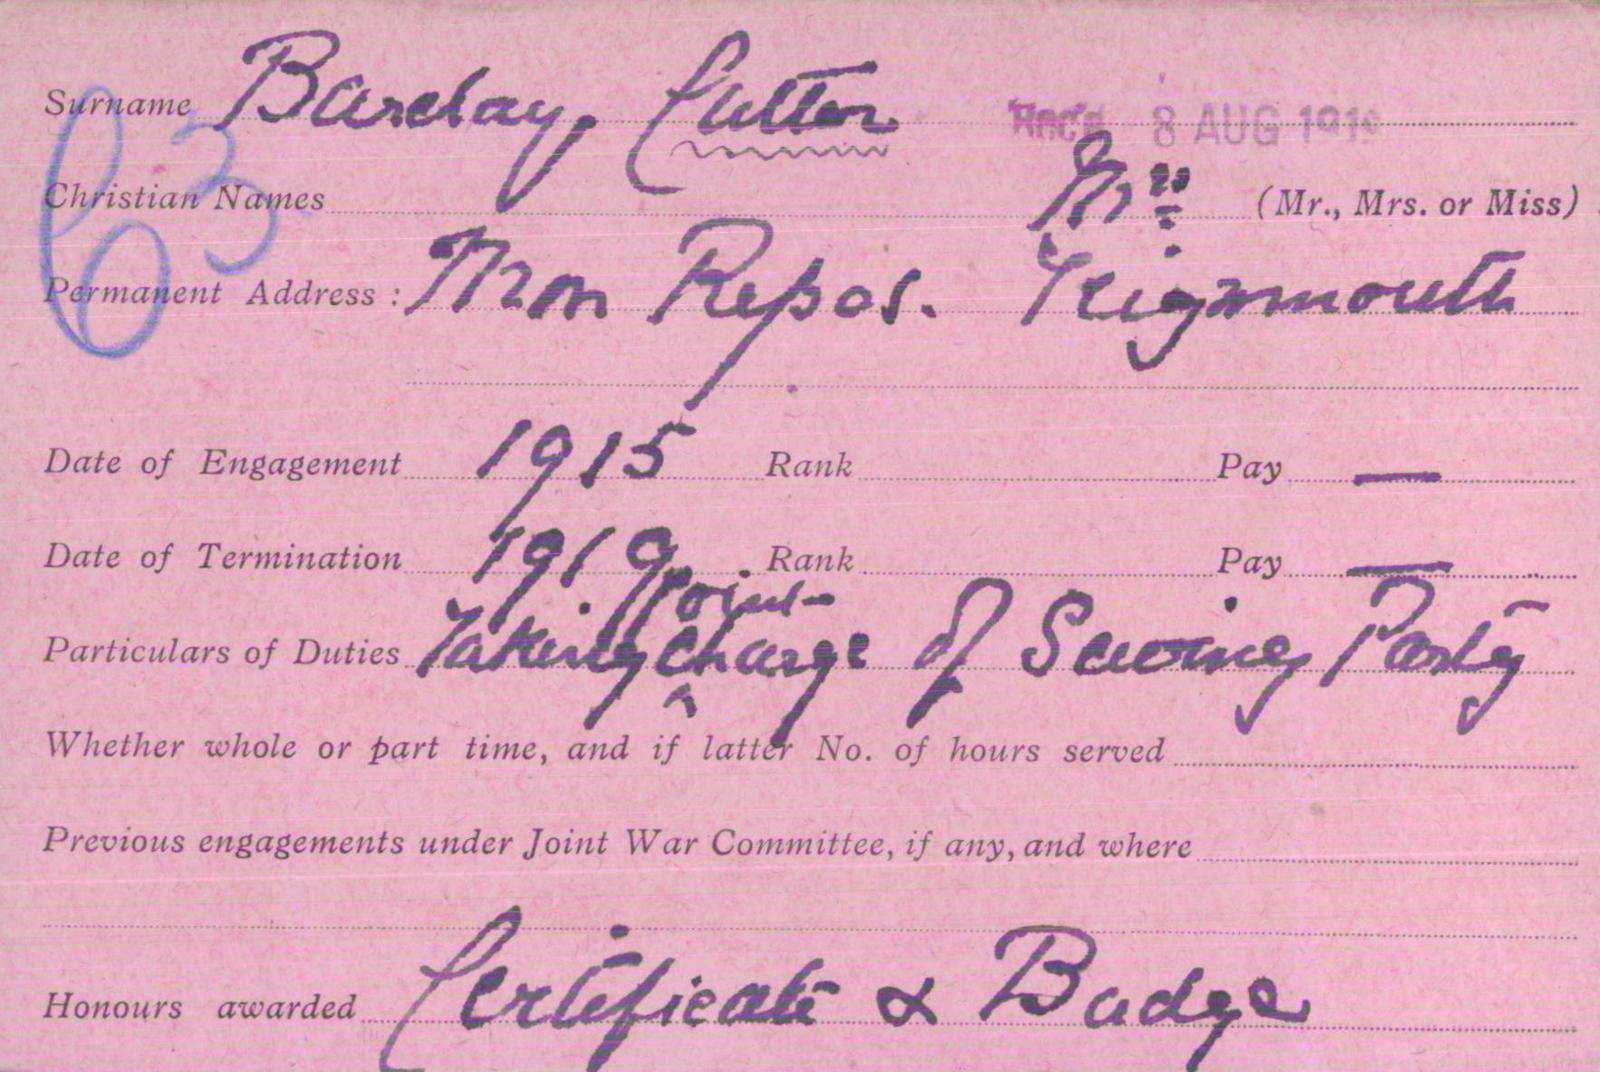 Surname Barclay Cutter Rec'd 8 AUG 1919
63
Christian Names Mrs (Mr., Mrs. or Miss)
Permanent Address : Mon Repos. Teignmouth
Date of Engagement 1915 Rank Pay —
Date of Termination 1919 Rank Pay —
joint
Particulars of Duties Taking ^ charge of Sewing Party
Whether whole or part time, and if latter No. of hours served
Previous engagements under Joint War Committee, if any, and where
Honours awarded Certificate & Badge